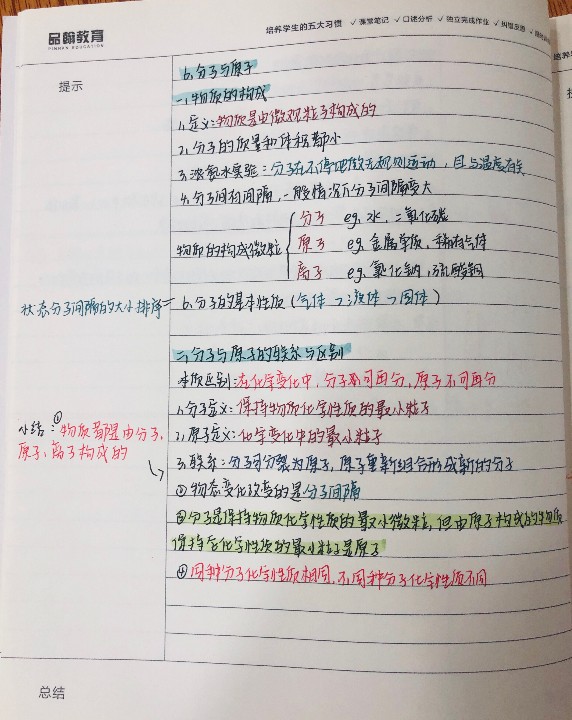 品翰教育
PINHAN EDUCATION
培养学生的五大习惯 ✓课堂笔记 ✓口述分析 ✓独立完成作业 ✓纠错反思
提示
6.分子与原子
一、物质的构成
1.定义:物质是由微观粒子构成的
2.分子的质量和体积都小
3.浓氨水实验:分子在不停地做无规则运动,且与温度有关
4.分子间有间隔,一般情况下分子间隔变大
物质的构成微粒
分子 eg.水,二氧化碳
原子 eg.金属单质,稀有气体
离子 eg.氯化钠,硫酸铜
状态分子间隔的大小排序=
6.分子的基本性质(气体→液体→固体)
二、分子与原子的联系与区别
本质区别:在化学变化中,分子可再分,原子不可再分
1.分子定义:保持物质化学性质的最小粒子
小结:①物质都是由分子、
原子、离子构成的
2.原子定义:化学变化中的最小粒子
3.联系:分子可分裂为原子,原子重新组合形成新的分子
②物态变化改变的是分子间隔
③分子是保持物质化学性质的最小微粒,但由原子构成的物质
保持它化学性质的最小粒子是原子
④同种分子化学性质相同,不同种分子化学性质不同
总结